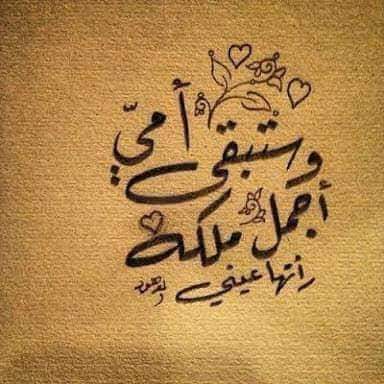 وستبقى أمّي
أجمل ملكة
رأتها عيني